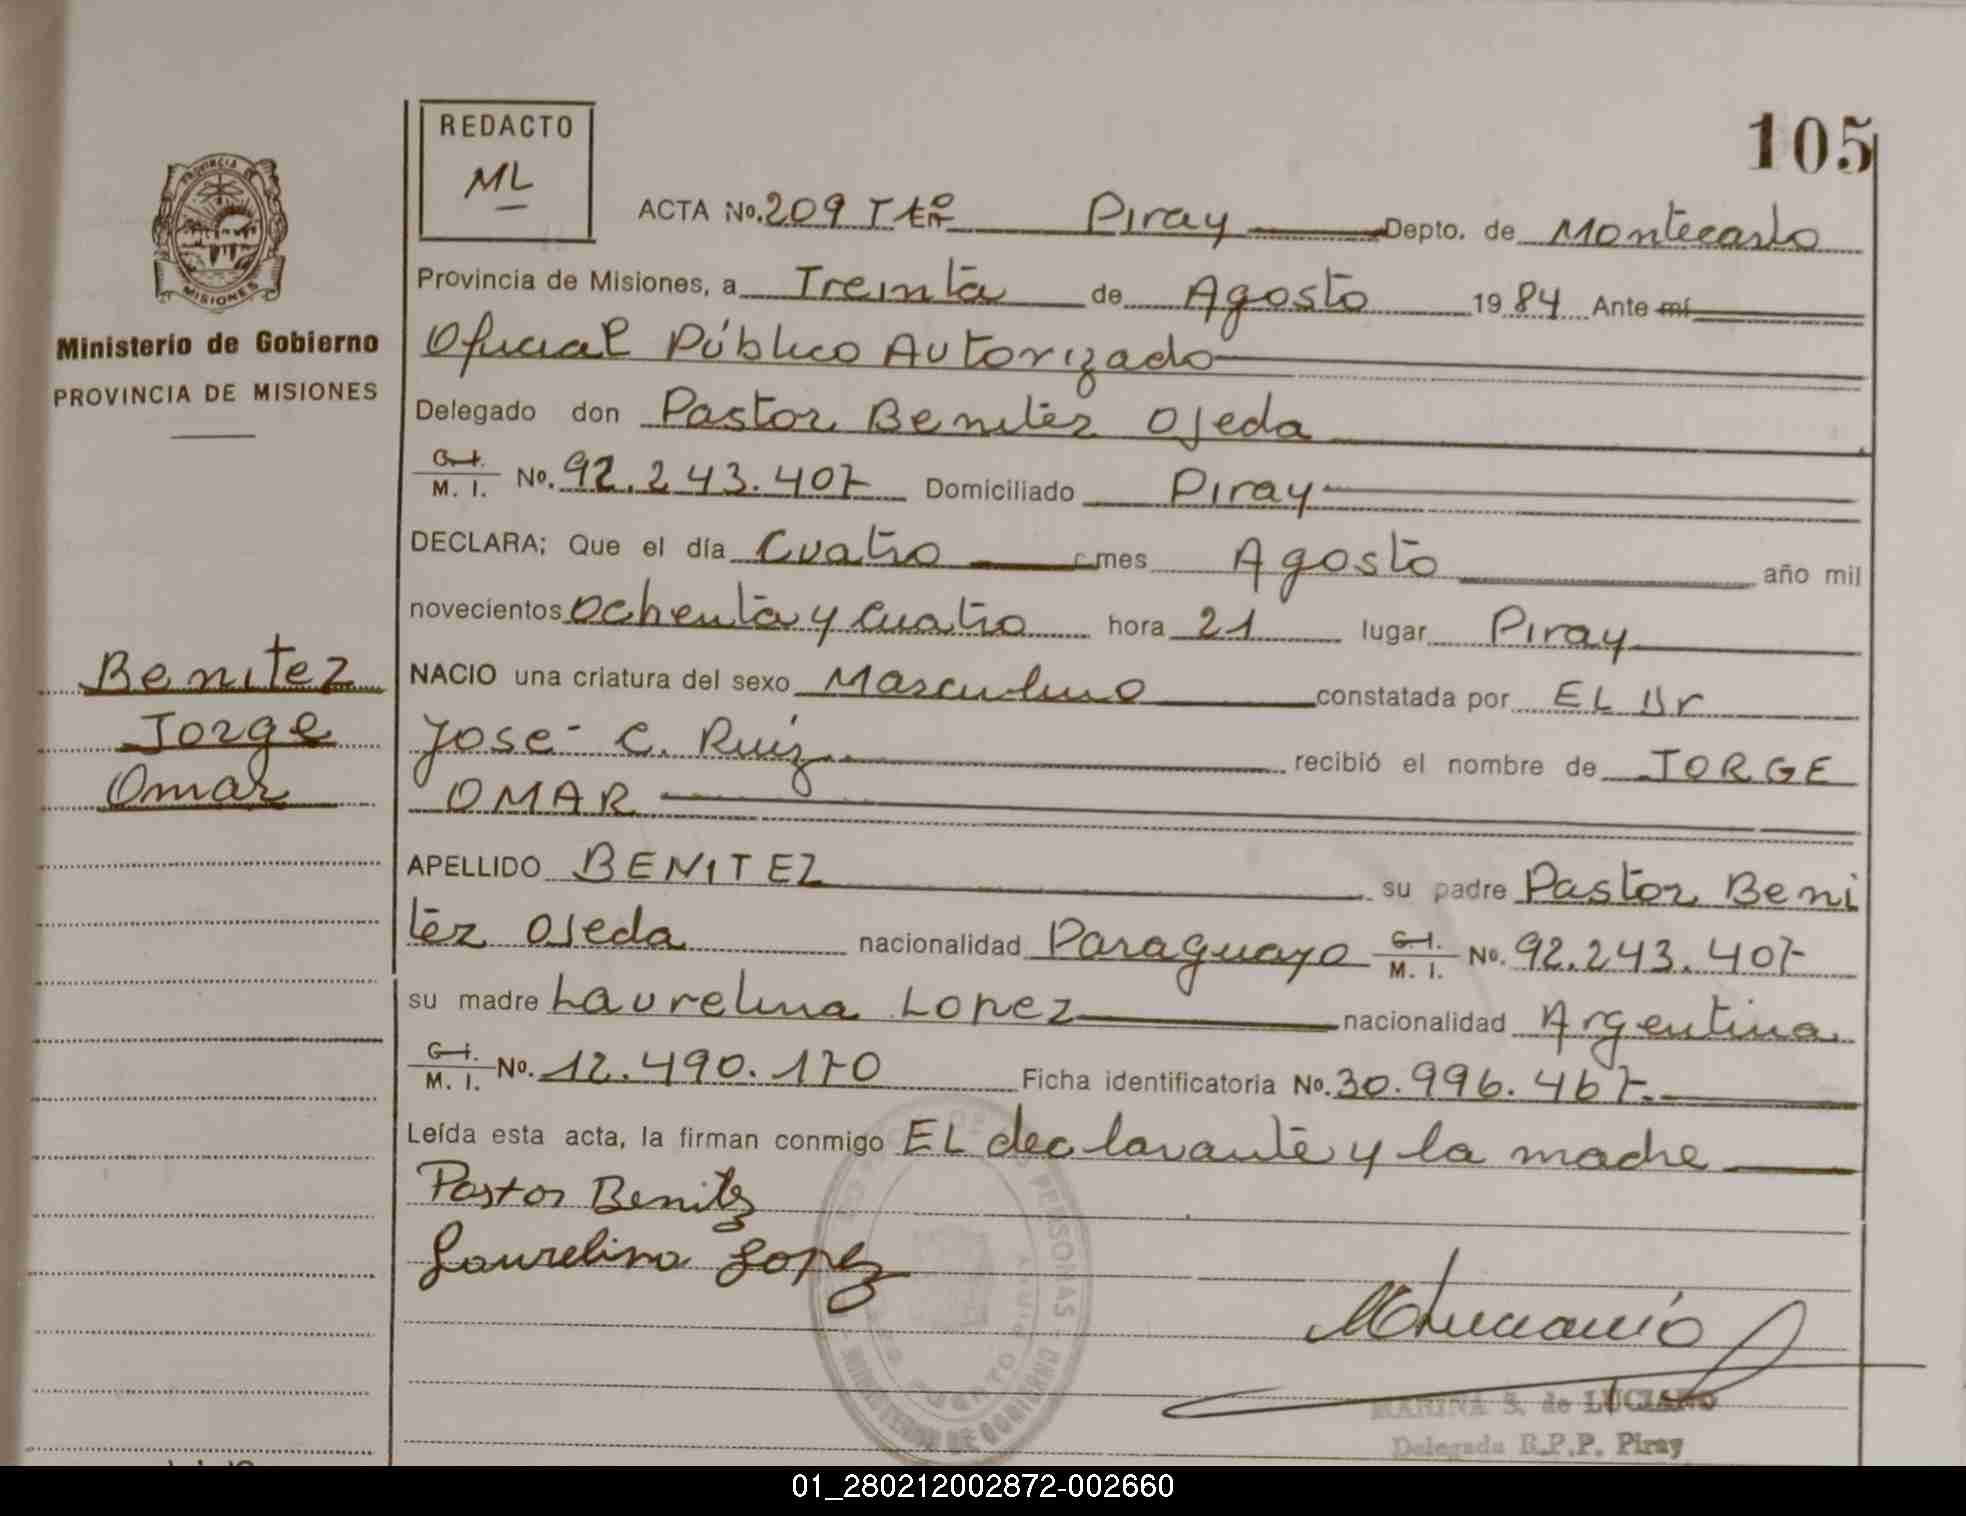 105
REDACTO
ML
ACTA No. 209 Piray Depto. de Montecarlo
Provincia de Misiones, a Treinta de Agosto 1984 Ante mí
Oficial Público Autorizado
Delegado don Pastor Benitez Ojeda
C.I. M. I. No. 92.243.407 Domiciliado Piray
DECLARA; Que el día Cuatro mes Agosto año mil
novecientos ochenta y cuatro hora 21 lugar Piray
NACIO una criatura del sexo Masculino constatada por EL Dr
José C. Ruiz recibió el nombre de JORGE
OMAR
APELLIDO BENITEZ su padre Pastor Beni
tez Ojeda nacionalidad Paraguayo C.I. M. I. No. 92.243.407
su madre Laurelina Lopez nacionalidad Argentina
C.I. M. I. No. 12.490.170 Ficha identificatoria No. 30.996.467.
Leída esta acta, la firman conmigo EL declarante y la madre
Pastor Benitez
Laurelina Lopez
MARINA S. de LUCIANO
Delegada R.P.P. Piray
PROVINCIA DE
MISIONES
Ministerio de Gobierno
PROVINCIA DE MISIONES
Benitez
Jorge
Omar
01_280212002872-002660